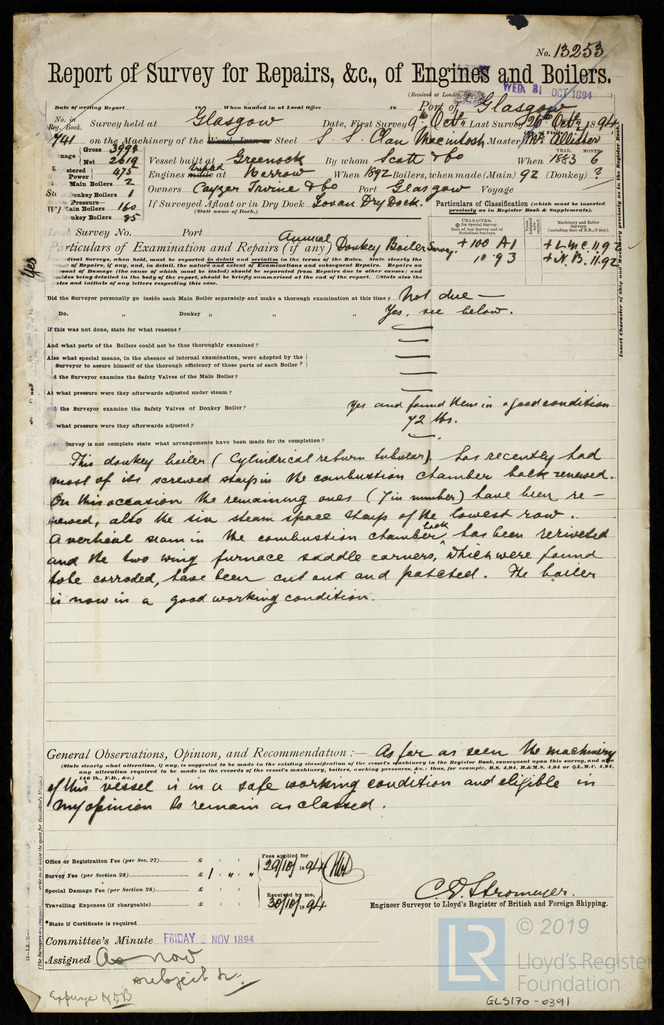 No. 13253
Report of Survey for Repairs, &c., of Engines and Boilers.
(Received at London WED. 31 OCT 1894
Date of writing Report When handed in at Local Office 18 Port of Glasgow
No. in Reg. Book. Survey held at Glasgow Date, First Survey 9th Octr. Last Survey 26th Octr. 1894
741 on the Machinery of the Wood, Iron or Steel S.S. Clan Macintosh Master McAllister
Tonnage Gross 3998 Net 2619 Vessel built at Greenock By whom Scott & Co When 1883 6 YEAR. MONTH.
Registered Power 475 Engines made at Barrow When 1892 Boilers, when made (Main) 92 (Donkey) ?
No. of Main Boilers 2 Owners Cayzer Irvine & Co Port Glasgow Voyage
No. of Donkey Boilers 1
Pressure—
Main Boilers 160 If Surveyed Afloat or in Dry Dock Govan Dry Dock.
Donkey Boilers 85 (State name of Dock.)
Particulars of Classification (which must be inserted precisely as in Register Book & Supplements).
CHARACTER. Machinery and Boiler Surveys (including date of N.B., if any).
+ 100 A1 + L.M.C. 11.92
10.93 + N.B. 11.92
Last Survey No. Port
Particulars of Examination and Repairs (if any) Annual Donkey Boiler Survey.
Did the Surveyor personally go inside each Main Boiler separately and make a thorough examination at this time? Not due —
Do. „ Donkey „ „ „ Yes, see below.
If this was not done, state for what reasons?
And what parts of the Boilers could not be thoroughly examined?
Also what special means, in the absence of internal examination, were adopted by the
Surveyor to assure himself of the thorough efficiency of those parts of each Boiler?
Did the Surveyor examine the Safety Valves of the Main Boiler?
At what pressure were they afterwards adjusted under steam?
Did the Surveyor examine the Safety Valves of Donkey Boiler? Yes and found them in a good condition
At what pressure were they afterwards adjusted? 72 lbs.
If the Survey is not complete state what arrangements have been made for its completion?
This donkey boiler (Cylindrical return tubular) has recently had
most of its screwed stays in the combustion chamber back renewed.
On this occasion the remaining ones (7 in number) have been re-
newed, also the six steam space stays of the lowest row.
A vertical seam in the combustion chamber back has been reriveted
and the two wing furnace saddle corners, which were found
to be corroded, have been cut out and patched. The boiler
is now in a good working condition.
General Observations, Opinion, and Recommendation:— As far as seen the machinery
(State clearly what alteration, if any, is suggested to be made in the existing classification of the vessel's machinery in the Register Book, consequent upon this survey, and also
any alteration required to be made in the records of the vessel's machinery, boilers, working pressures, &c.: thus, for example, B.S. 4.94, B.&M.S. 4.94 or L.M.C. 4.94,
140 lb., F.D., &c.)
of this vessel is in a safe working condition and eligible in
my opinion to remain as classed.
Office or Registration Fee (per Sec. 27) £ : :
Survey Fee (per Section 28) £ 1 : „ : „
Special Damage Fee (per Section 28) £ : :
Travelling Expenses (if chargeable) £ : :
Fees applied for 29/10/1894
Received by me, 30/10/1894
*State if Certificate is required
C. E. Stromeyer.
Engineer Surveyor to Lloyd's Register of British and Foreign Shipping.
Committee's Minute FRIDAY 2 NOV 1894
Assigned As now
subject to
© 2019
LR Lloyd's Register Foundation
GLS170-0391